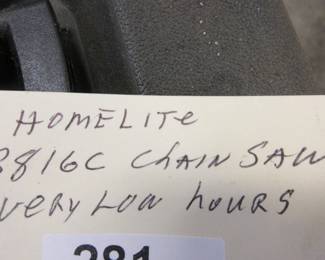 HOMELITE
3816C CHAIN SAW
VERY LOW HOURS
281